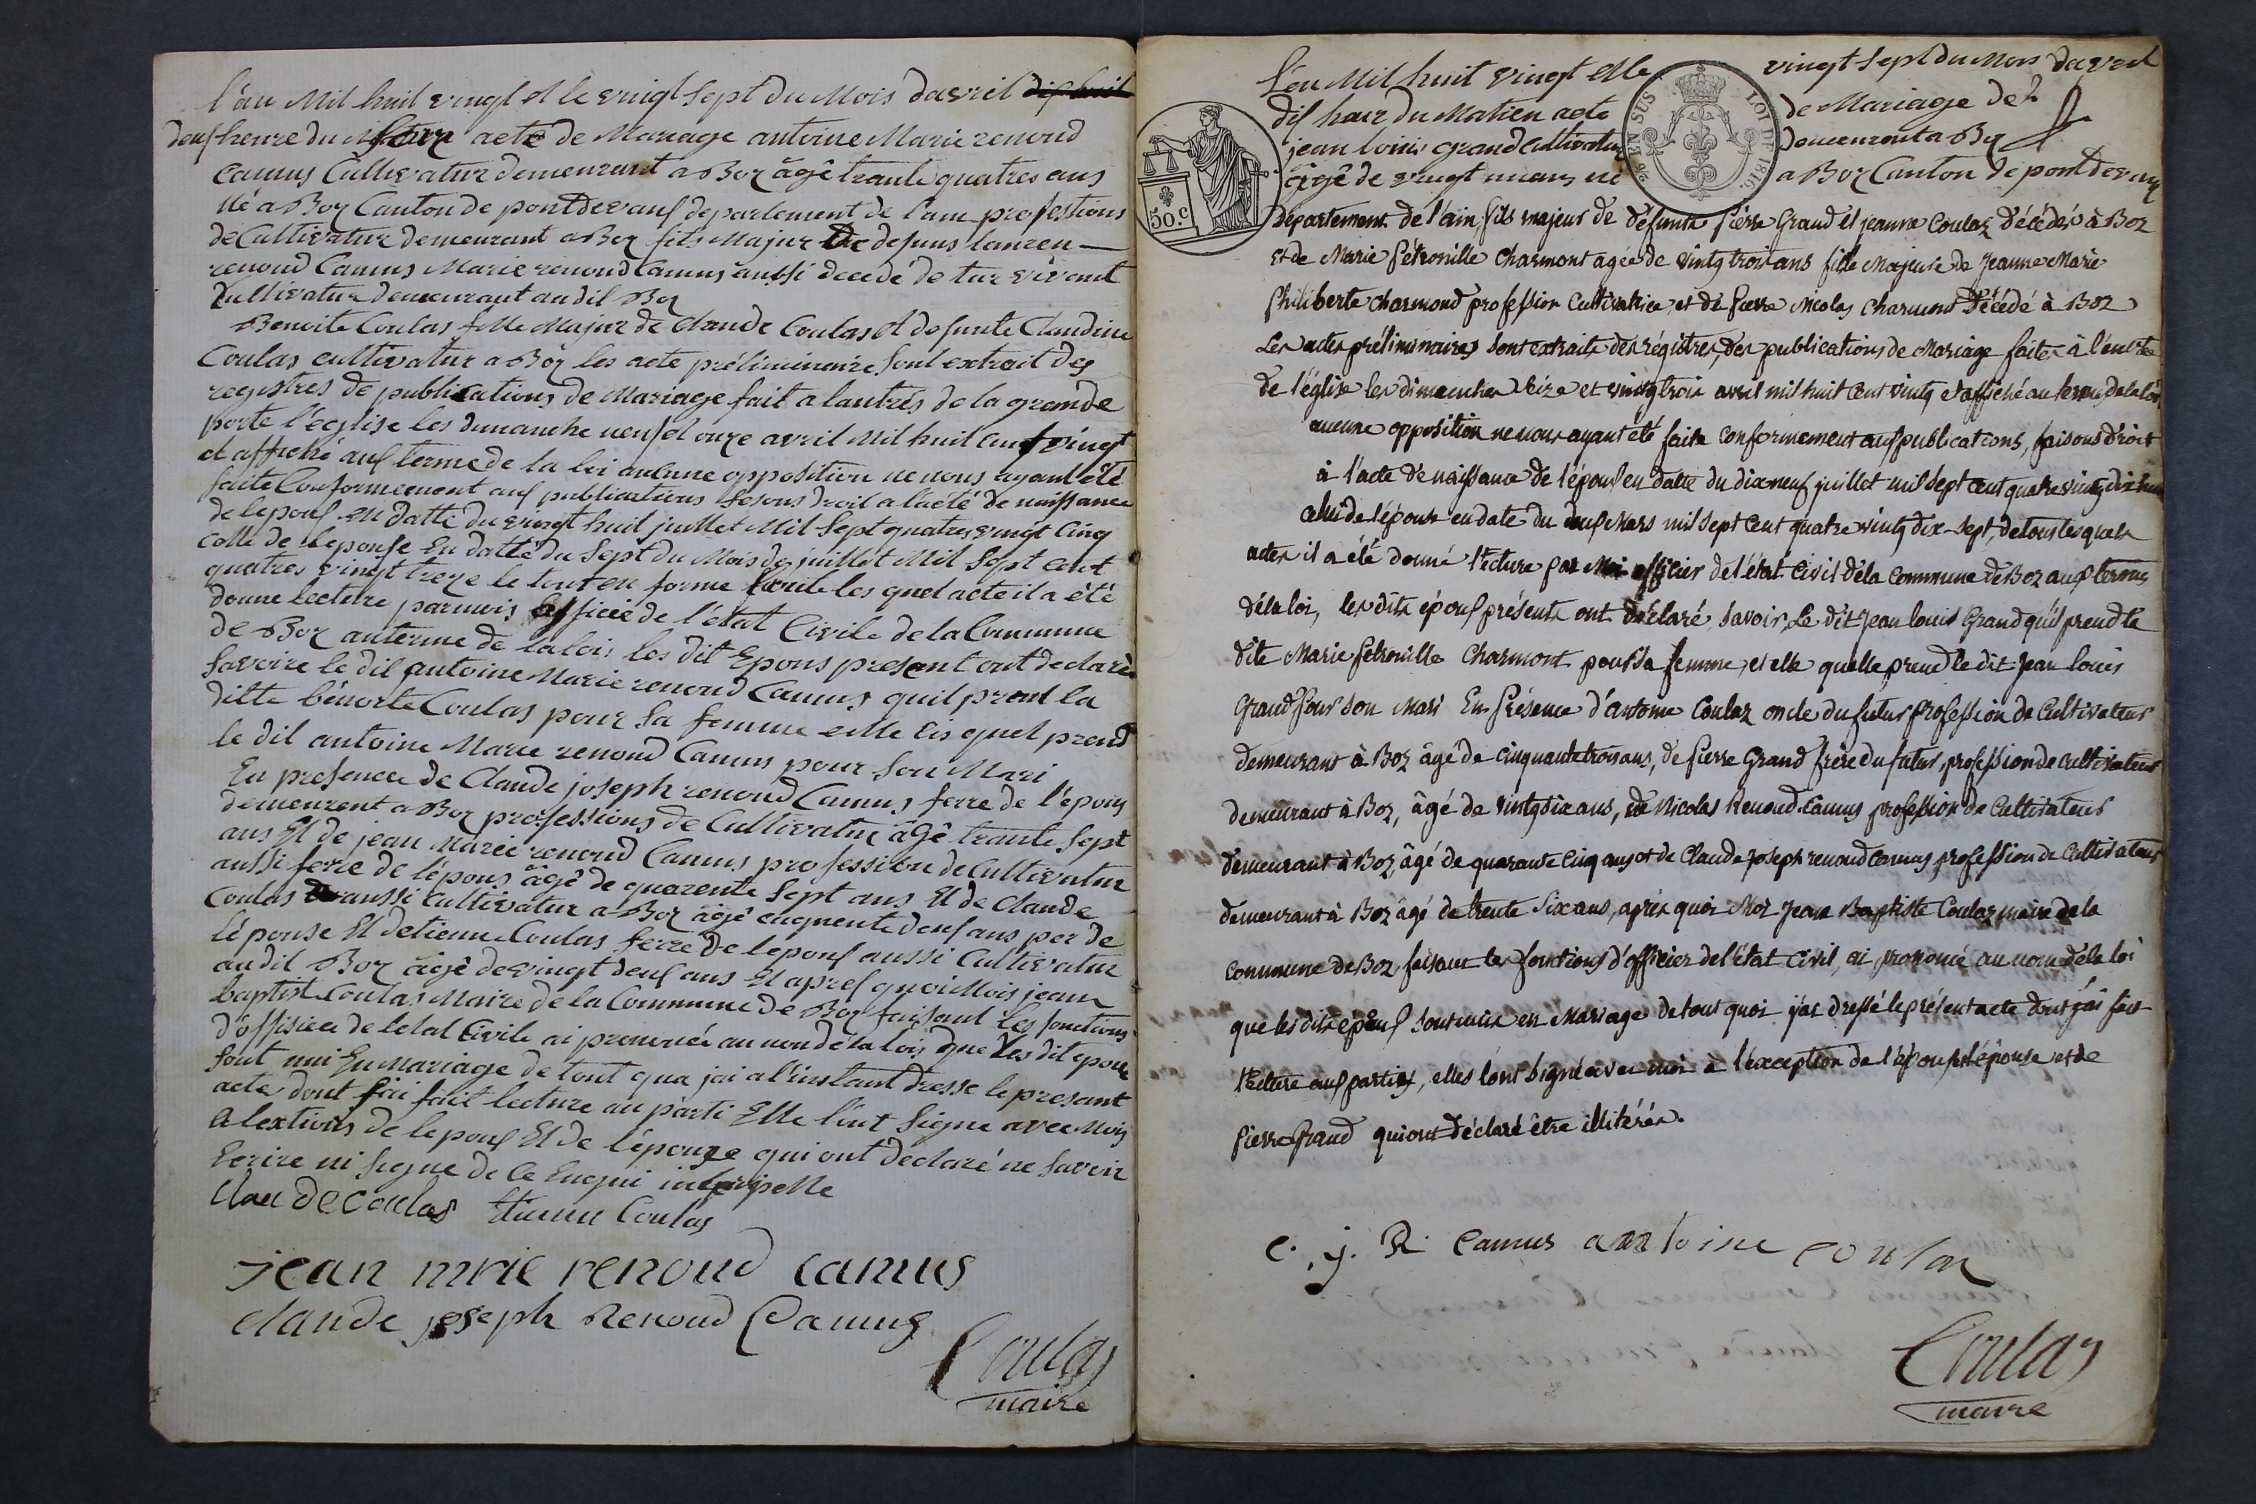 l'an Mil huit vingt et le vingt sept du Mois davril dix huit
deux heure du Matin acte de Mariage antoine Marie renoud
camus Cultivatur demeurant a Boz âgê trante quatres ans
né a Boz Canton de pontdevaux departement de l'ain professions
de Cultivatur demeurant a Boz fils Majur De defuns lauren
renoud Camus Marie renoud Camus aussi decedé de tur vivant
Cultivatur demeurant audit Boz
Benoite Coulas fille Majur de Claude Coulas et defunte Claudine
Coulas cultivatur a Boz les acte préliminaire sont extrait des
registres de publications de Mariage fait a lantrés de la grande
porte l'eglise les dimanche neuf et onze avril Mil huit cent vingt
et affiché aux terme de la loi aucune opposition ne nous ayant été
faite Conformement aux publications fesons droit a l'acté de naissance
de lepoux en datte du vingt huit juillet Mil Sept quatres vingt Cinq
celle de leponse En datte du Sept du Mois de juillet Mil Sept cent
quatres vingt treze le tout en forme les quel acte il a été
donne lecture par mois officié de l'état Civile de la Commune
de Boz anterme de la loi les dit Epous presant ont declaré
Savoire le dit antoine Marie renoud Camus quil prent la
ditte bénoite Coulas pour Sa femme elle quel prend
le dit antoine Marie renoud Camus pour Son Mari
En presence de Claude joseph renoud Camus ferre de l'epous
demeurent a Boz professions de Cultivatur âgê trante Sept
ans Et de jean Marie renoud Camus profession de Cultivatur
aussi ferre de l'épous âgê de quarente Sept ans Et de Claude
Coulas aussi Cultivatur a Boz âgê cinquente deux ans per de
léponse Et detienne Coulas ferre de lepouse aussi Cultivatur
audit Boz âgê de vingt deux ans Et apres quoi Mois jean
baptist Coulas Maire de la Commune de Boz faisant les fonctions
d'offisier de letat Civile ai prononcé au non de la lois que les dit epoux
Sont uni En Mariage de tout qua jai a l'instant dresse le presant
acte dont jai fait lecture au parti Elle l'int Signe avec Mois
a lextions de lepoux Et de l'épouze qui ont declaré ne Savoir
Ecrire ni Signe de ce interpelle
Claude Coulas Etienne Coulas
jean mrie renoud camus
claude joseph Renoud Camus
Coulas
maire
EN SUS LOI DE 1816.
50.c
L'an Mil huit vingt et le vingt sept du Mois davril
dix heur du Matien acte de Mariage de
jean louis grand Cultivatur Demeurant a Boz
âgé de vingt un ans né a Boz Canton de pontdevaux
département de l'ain, fils majeur de défunts Pierre Grand et jeanne Coulaz décédés à Boz
et de Marie Pétronille Charmont agée de vintg trois ans fille Majeure de Jeanne Marie
Philiberte charmond profession Cultivatrice et de Pierre Nicolas Charmont décédé à Boz
Les actes préliminaires sont extraits des régistres, des publications de Mariage faites à l'entrée
de l'église les dimanches seize et vingtrois avril mil huit cent vintg et affiché au terme de la loi
aucune opposition ne nous ayant été faite conformement aux publications, faisons droit
à l'acte de naissance de l'époux en date du dixneuf juillet mil sept cent quatre vintg dix huit
celui de l'épouse en date du deux Mars mil sept cent quatre vintg dix-sept, de tous lesquels
actes il a été donné l'ecture par Moi officier de l'état civil déla commune de Boz aux termes
déla loi, les dits époux présents ont déclaré savoir, Le dit Jean louis Grand qu'il prend la
dite Marie Petronille Charmont pour sa femme, et elle quelle prend le dit Jean louis
Grand Pour son Mari En Présence d'antoine Coulaz oncle du futur profession de Cultivateur
demeurant à Boz âgé de cinquante trois ans, de Pierre Grand frère du futur, profession de cultivateur
demeurant à Boz, âgé de vintg six ans, de Nicolas Renoud-Camus profession de Cultivateur
demeurant à Boz, âgé de quarante cinq ans et de Claude Joseph renoud Camus profession de Cultivateur
demeurant à Boz âgé de trente six ans, après quoi Moi Jean Baptiste Coulaz maire déla
commune de Boz, faisant les fonctions d'officier de l'état civil, ai prononcé au nom déla loi
que les dits époux sont unis en Mariage de tout quoi j'ai dressé le présent acte dont j'ai fait
l'ecture aux parties, elles l'ont signé avec moi à l'exception de l'époux l'épouse et de
Pierre Grand qui ont déclaré être illitérés.
C. j. R. Camus antoine coulas
Coulas
maire